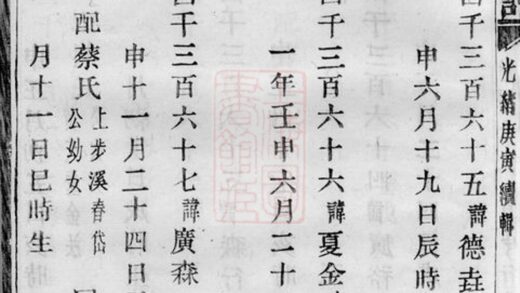 光緖庚寅續輯
四千三百六十五諱德垚
申六月十九日辰時
四千三百六十六諱夏金
一年壬申六月二十
四千三百六十七諱廣森
申十一月二十四日
配蔡氏上步溪春岱公幼女
月十一日巳時生